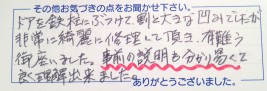 その他お気づきの点をお聞かせ下さい。
ドアを鉄柱にぶつけて、割と大きな凹みでしたが
非常に綺麗に修理して頂き、有難う
御座いました。事前の説明も分かり易くて
良く理解出来ました。
ありがとうございました。